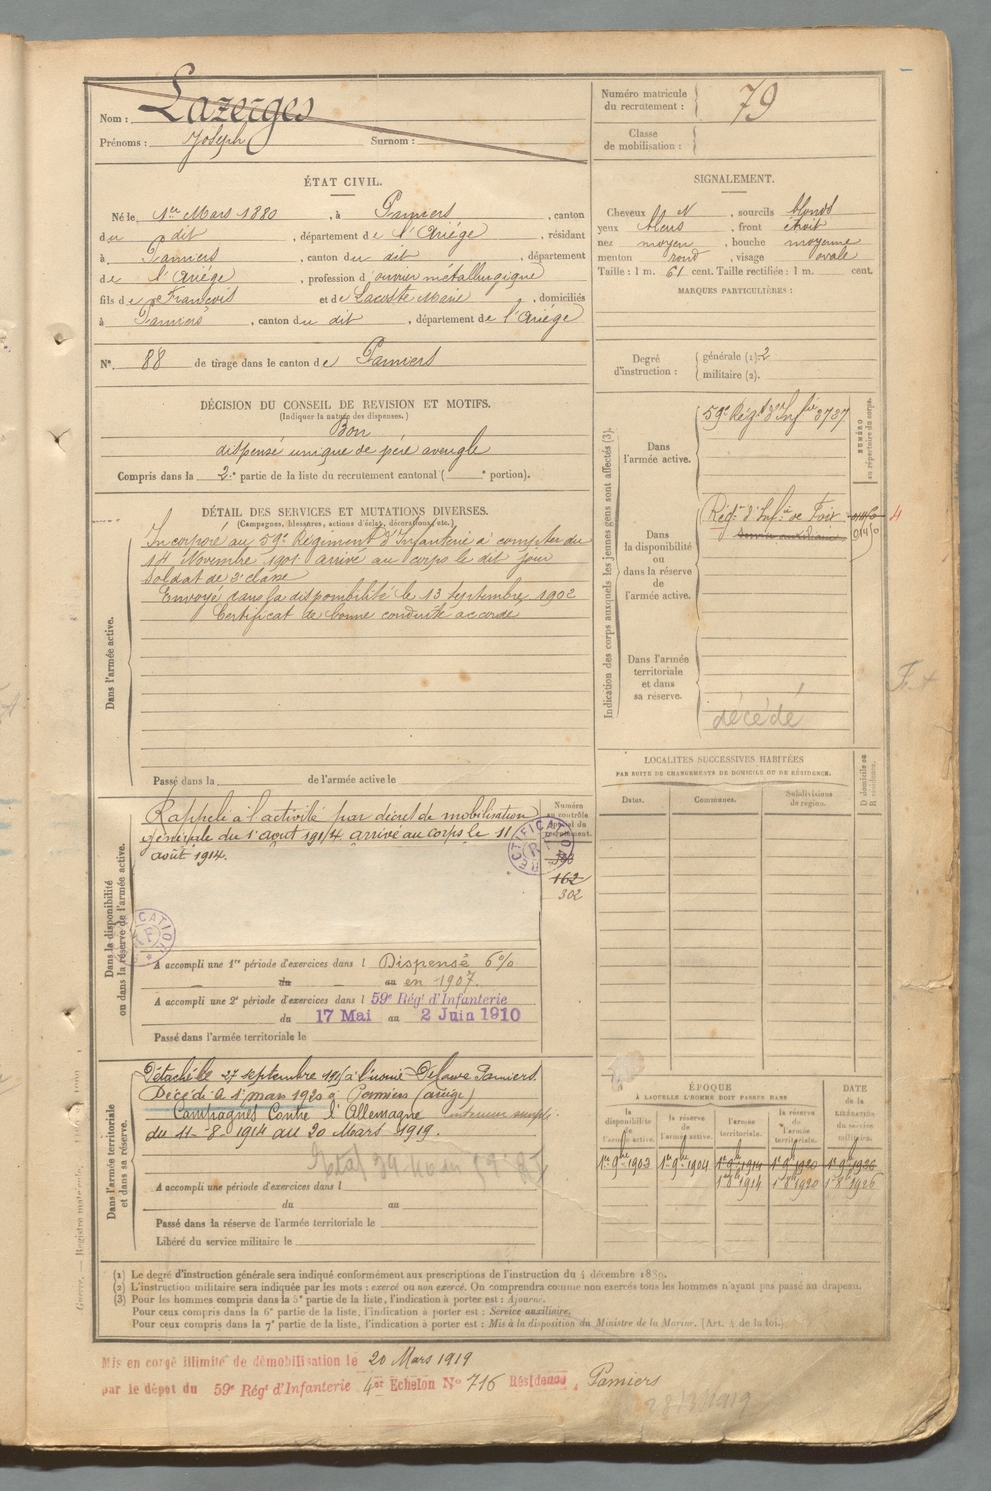 Nom : Lazerges
Prénoms : Joseph Surnom :
Numéro matricule du recrutement : 79
Classe de mobilisation :
ÉTAT CIVIL.
Né le 1er Mars 1880, à Pamiers, canton
du dit, département de l'Ariége, résidant
à Pamiers, canton du dit, département
de l'Ariége, profession d'ouvrier métallurgique
fils de François et de Lacoste Marie, domiciliés
à Pamiers, canton du dit, département de l'Ariége
N° 88 de tirage dans le canton de Pamiers
SIGNALEMENT.
Cheveux bl N, sourcils blonds
yeux bleus, front étroit
nez moyen, bouche moyenne
menton rond, visage ovale
Taille : 1 m. 61 cent. Taille rectifiée : 1 m. cent.
MARQUES PARTICULIÈRES :
Degré d'instruction : générale (1). 2
militaire (2).
DÉCISION DU CONSEIL DE REVISION ET MOTIFS.
(Indiquer la nature des dispenses.)
Bon
dispensé unique de père aveugle
Compris dans la 2e partie de la liste du recrutement cantonal ( e portion).
DÉTAIL DES SERVICES ET MUTATIONS DIVERSES.
(Campagnes, blessures, actions d'éclat, décorations, etc.)
Dans l'armée active.
Incorporé au 59e Régiment d'Infanterie à compter du
14 Novembre 1901 arrivé au corps le dit jour
Soldat de 2e classe
Envoyé dans la disponibilité le 13 Septembre 1902
Certificat de bonne conduite accordé
Passé dans la de l'armée active le
Indication des corps auxquels les jeunes gens sont affectés (3).
NUMÉRO au répertoire du corps.
Dans l'armée active.
59e Régt d'Infie 3787
Dans la disponibilité ou dans la réserve de l'armée active.
Régt d'Infie de Foix
Service auxiliaire
4
Dans l'armée territoriale et dans sa réserve.
décédé
LOCALITÉS SUCCESSIVES HABITÉES
PAR SUITE DE CHANGEMENTS DE DOMICILE OU DE RÉSIDENCE.
Dates. Communes. Subdivisions de région. D domicile ou R résidence.
Dans la disponibilité ou dans la réserve de l'armée active.
Rappelé à l'activité par décret de mobilisation
générale du 1er août 1914 arrivé au corps le 11
août 1914.
RECTIFICATION
162
302
A accompli une 1re période d'exercices dans l Dispensé 6%
du au en 1907.
A accompli une 2e période d'exercices dans l 59e Régt d'Infanterie
du 17 Mai au 2 Juin 1910
Passé dans l'armée territoriale le
Dans l'armée territoriale et dans sa réserve.
Détaché le 27 septembre 191 à l'usine Delaure Pamiers.
Décédé le 1er mars 1920 à Pamiers (ariège)
Campagnes Contre l'Allemagne
du 11-8-1914 au 20 Mars 1919.
A accompli une période d'exercices dans l
du au
Passé dans la réserve de l'armée territoriale le
Libéré du service militaire le
ÉPOQUE À LAQUELLE L'HOMME DOIT PASSER DANS
DATE de la LIBÉRATION du service militaire.
la disponibilité de l'armée active. la réserve de l'armée active. l'armée territoriale. la réserve de l'armée territoriale.
1er 9bre 1903 1er 9bre 1904 1er 9bre 1914 1er 9bre 1920 1er 9bre 1926
1er 8bre 1914 1er 8bre 1920 1er 8bre 1926
(1) Le degré d'instruction générale sera indiqué conformément aux prescriptions de l'instruction du 4 décembre 1889.
(2) L'instruction militaire sera indiquée par les mots : exercé ou non exercé. On comprendra comme non exercés tous les hommes n'ayant pas passé au drapeau.
(3) Pour les hommes compris dans la 5e partie de la liste, l'indication à porter est : Ajourné.
Pour ceux compris dans la 6e partie de la liste, l'indication à porter est : Service auxiliaire.
Pour ceux compris dans la 7e partie de la liste, l'indication à porter est : Mis à la disposition du Ministre de la Marine. (Art. 4 de la loi.)
Mis en congé illimité de démobilisation le 20 Mars 1919
par le dépôt du 59e Régt d'Infanterie 4e Echelon N° 716 Résidence, Pamiers